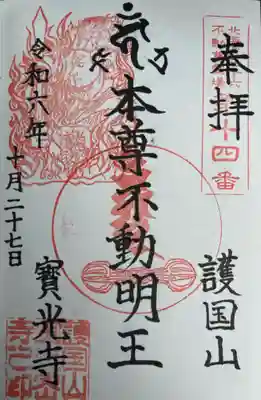 奉拝
十四番
護国山
本尊不動明王
令和六年
十月二十七日
寳光寺